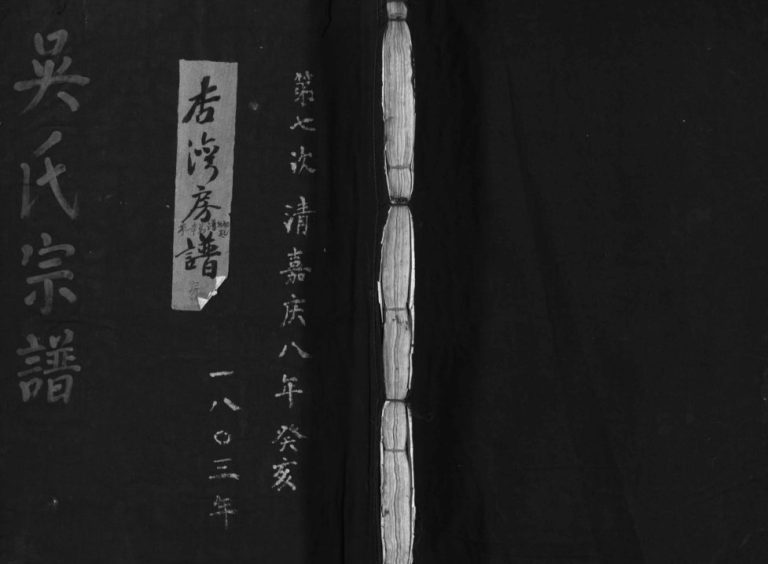 第七次 清嘉庆八年癸亥
一八〇三年
杏湾房譜
吴氏宗譜